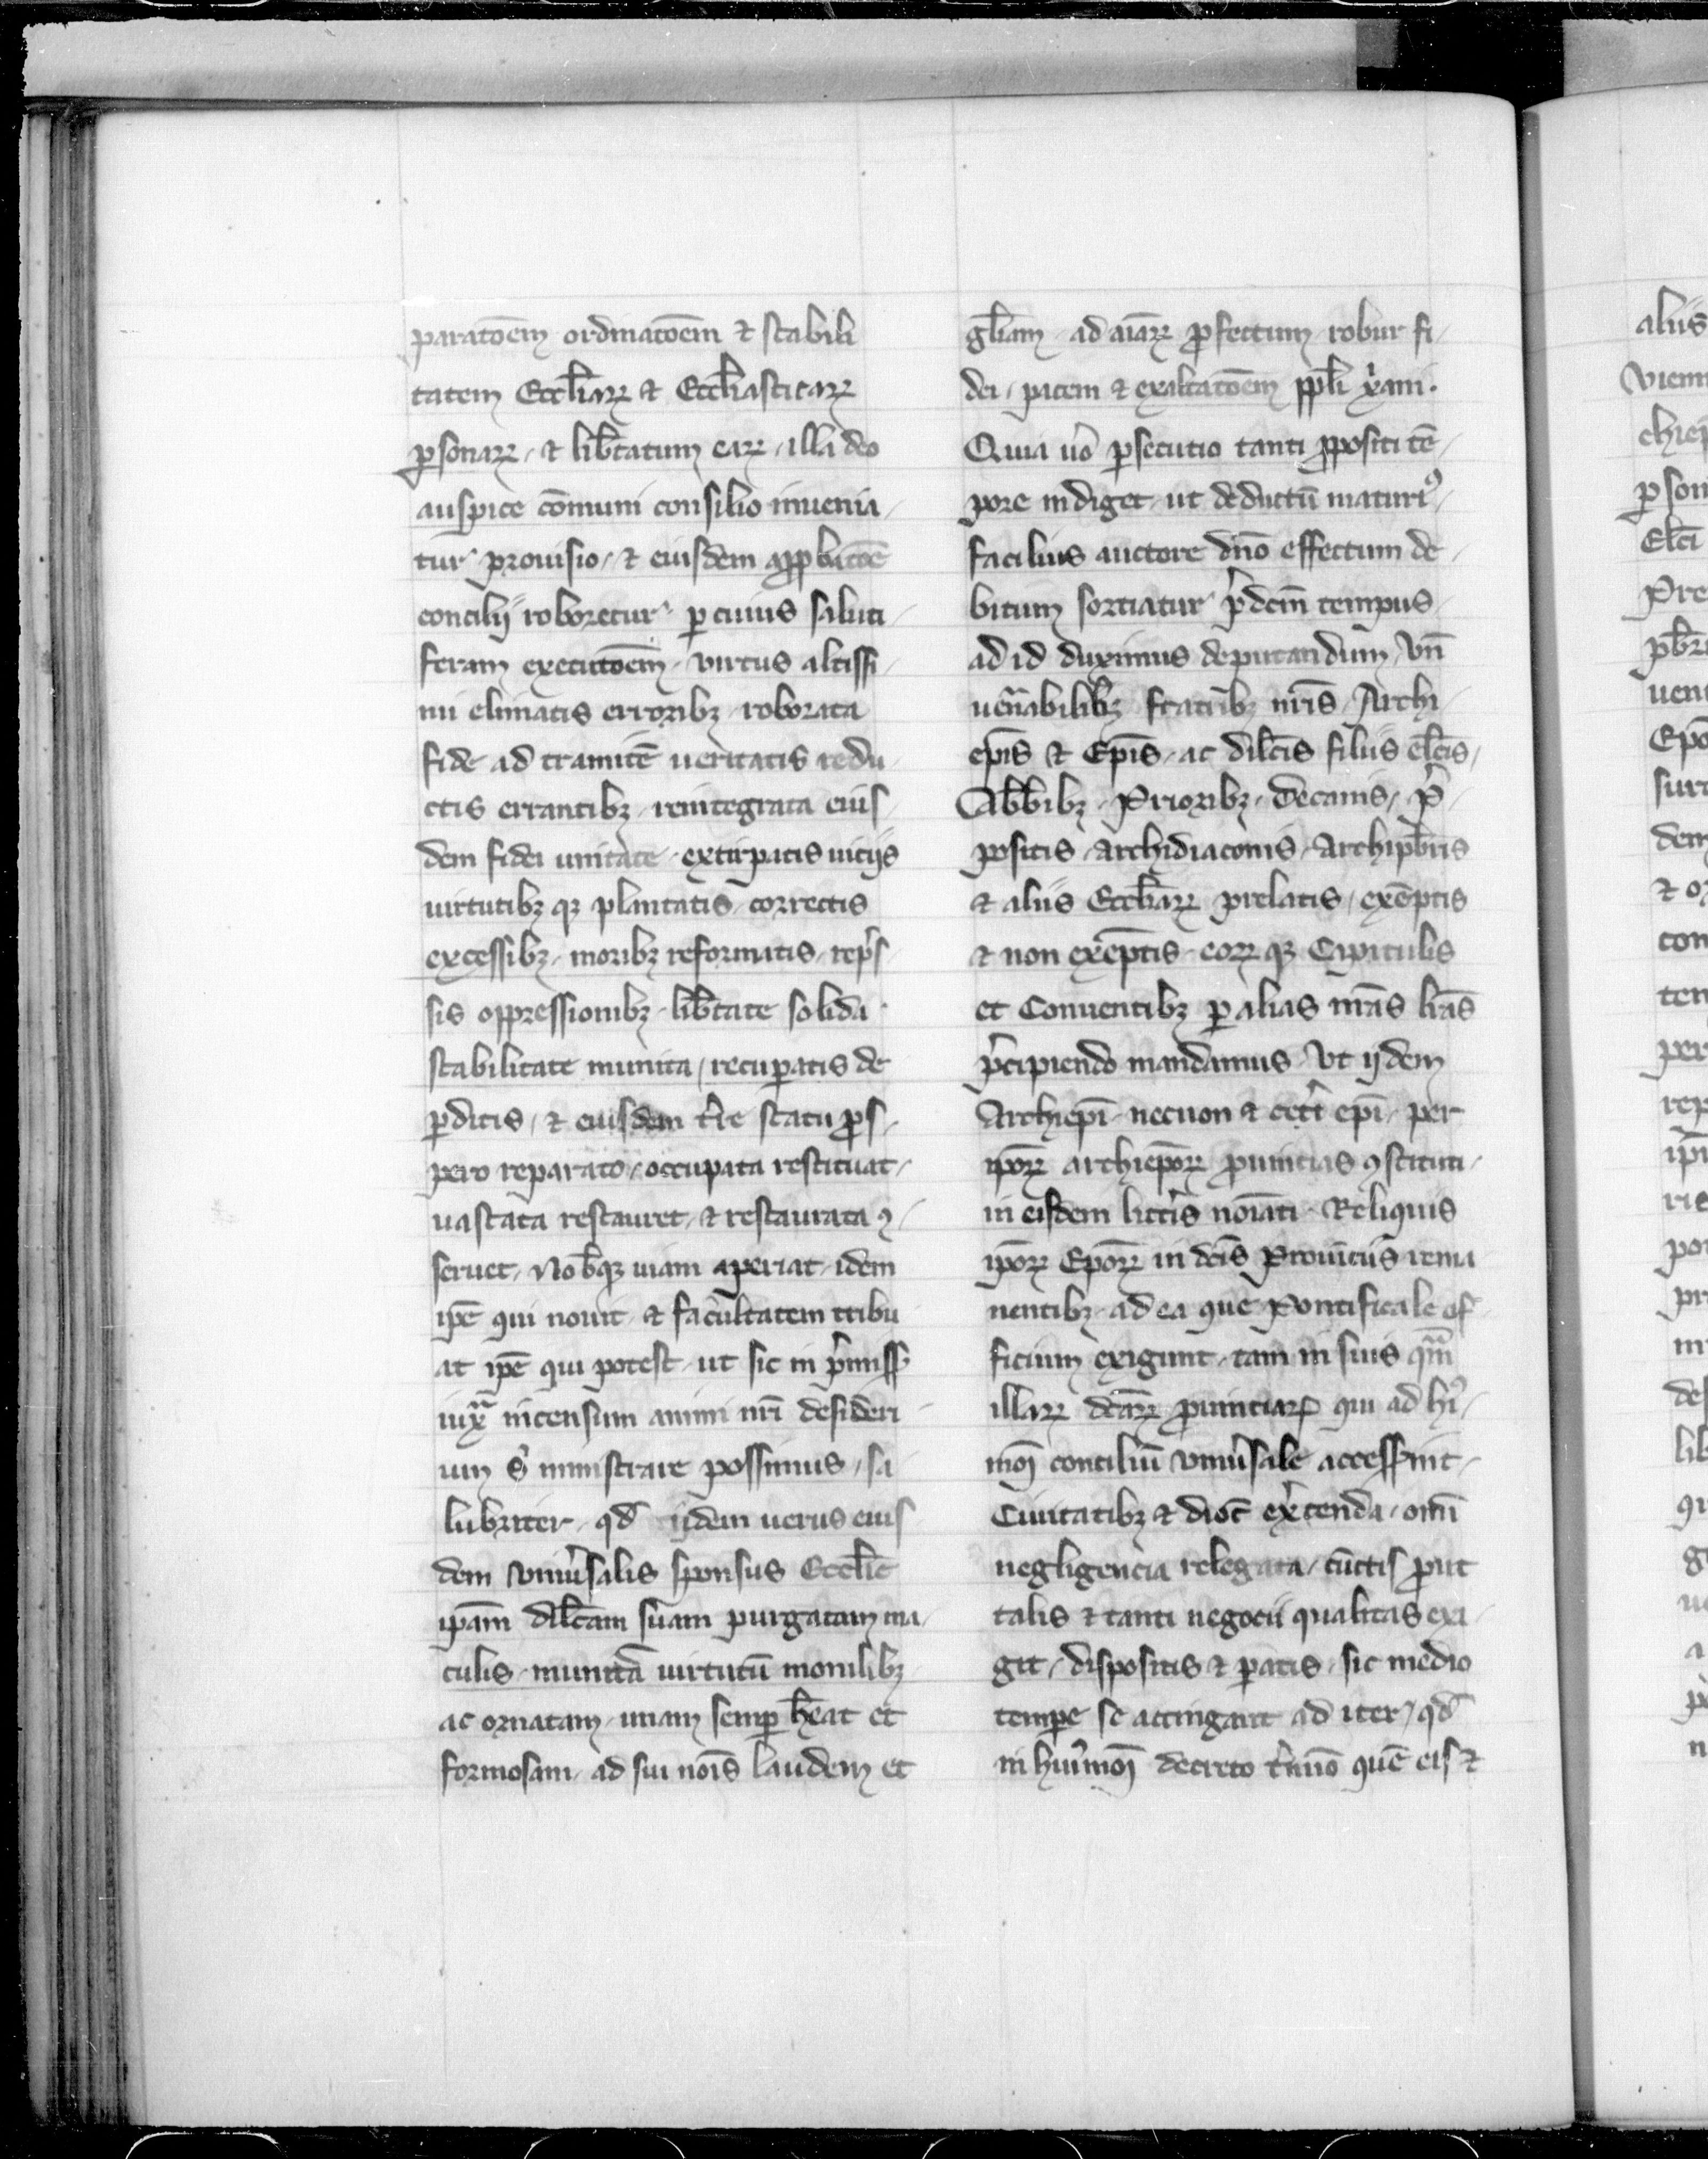 paratōem ordinatōem ⁊ stabili
tatem Eccl̄iaꝝ ⁊ Eccl̄iasticaꝝ
ꝑsonaꝝ, ⁊ lib̄tatum eaꝝ, illa deo
auspice cōmuni consilio inuenia
tur prouisio, ⁊ eiusdem apꝓbatōe
concilij roboretur ꝑ cuius saluti
feram executōem, virtus altissi
mi elimatis erroribꝫ roborata
fide ad tramitē ueritatis redu
ctis errantibꝫ, reintegrata eius
dem fidei unitate, extirpatis uicijs
uirtutibꝫqꝫ plantatis, correctis
excessibꝫ, moribꝫ reformatis, rep̄s
sis oppressionibꝫ, lib̄tate solida
stabilitate munita, recuꝑatis de
ꝑditis, ⁊ eiusdem t̄re statu ꝓs
pero reparato, occupata restituat,
uastata restauret, ⁊ restaurata ꝯ
seruet, Nob̄qꝫ uiam aperiat idem
ip̄e qui nouit ⁊ facultatem tribu
at ip̄e qui potest, ut sic in p̄miss̄
iuxᵃ incensum animi nr̄i desideri
um s̄ ministrare possimus, sa
lubriter, qd̄ ijdem uerus eius
dem vniu̓salis sponsus Eccl̄ie
ip̄am dilc̄am suam purgatam ma
culis, munitā uirtutū monilibꝫ
ac ornatam, unam semꝑ h̄eat et
formosam, ad sui nōis laudem et
gl̄iam, ad aīaꝝ ꝓfectum, robur fi
dei, pacem ⁊ exaltatōem ppl̄i xp̄iani.
Quia uo̓ ꝑsecutio tanti ꝓpositi tē
pore indiget, ut deductū maturiꝰ,
facilius auctore dn̄o effectum de
bitum sortiatur p̄dcm̄ tempus
ad id duximus deputandum, Vn̄
uen̄abilibꝫ fratribꝫ nr̄is Archi
ep̄is ⁊ Ep̄is, ac dilc̄is filiis elc̄is,
Abb̄ibꝫ, Prioribꝫ, Decanis, p̄
positis, Archidiaconis, Archipb̄ris
⁊ aliis Eccl̄iaꝝ prelatis, exēptis
⁊ non exēptis, eoꝝqꝫ Capitulis
et Conuentibꝫ ꝑ alias nr̄as lr̄as
p̄cipiendo mandamus, Vt ijdem
Archiep̄i necnon ⁊ cet̄i ep̄i, per
ip̄oꝝ archiep̄oꝝ ꝓuincias ꝯstituti,
in eisdem litt̄is noīati, Reliquis
ip̄oꝝ Ep̄oꝝ in dc̄is Prouīciis rema
nentibꝫ, ad ea que Pontificale of
ficium exigunt, tam in suis qᵃm
illaꝝ dc̄aꝝ ꝓuinciaꝝ qui ad hꝰ
mōi conciliū vniu̓sale access̄int,
Ciuitatibꝫ ⁊ dioc̄ ex̓cenda, om̄i
negligencia relegata, cūctis ꝓut
talis ⁊ tanti negocii qualitas exi
git, dispositis ⁊ ꝑatis, sic medio
temꝑe se accingant ad iter, qd̄
in hui̓mōi decreto t̓mīo quē eis ⁊